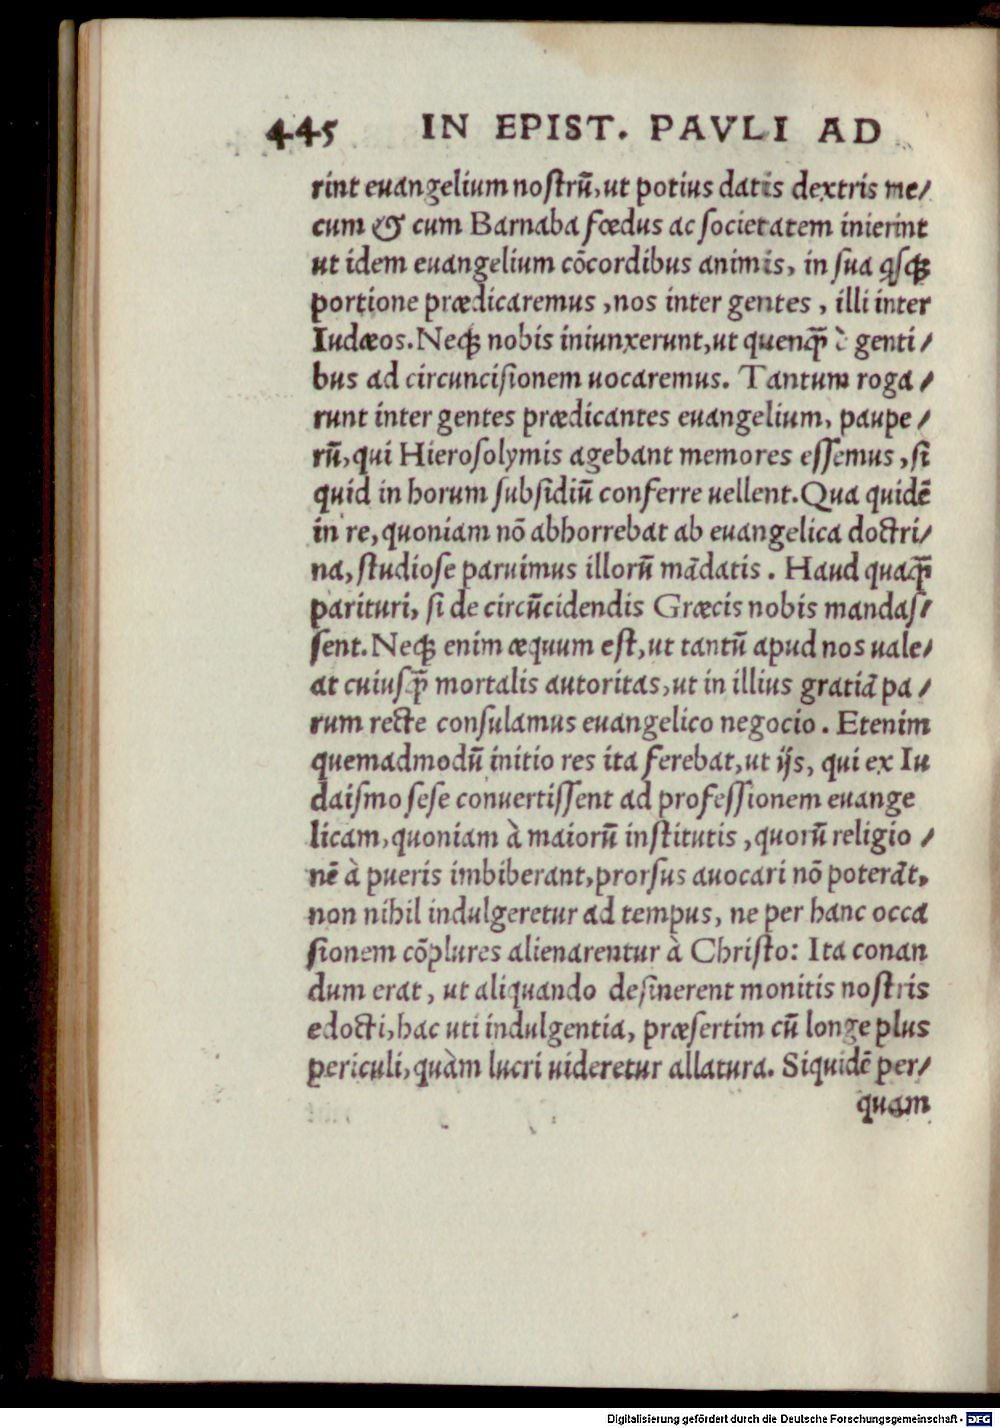 445 IN EPIST. PAVLI AD
rint euangelium nostrū, ut potius datis dextris me/
cum & cum Barnaba fœdus ac societatem inierint
ut idem euangelium cōcordibus animis, in sua qsqꝫ
portione prædicaremus, nos inter gentes, illi inter
Iudæos. Neqꝫ nobis iniunxerunt, ut quenq̄ è genti/
bus ad circuncisionem uocaremus. Tantum roga/
runt inter gentes prædicantes euangelium, paupe/
rū, qui Hierosolymis agebant memores essemus, si
quid in horum subsidiū conferre uellent. Qua quidē
in re, quoniam nō abhorrebat ab euangelica doctri/
na, studiose paruimus illorū mādatis. Haud quaq̄
parituri, si de circūcidendis Græcis nobis mandas/
sent. Neqꝫ enim æquum est, ut tantū apud nos uale/
at cuiusq̄ mortalis autoritas, ut in illius gratiā pa/
rum recte consulamus euangelico negocio. Etenim
quemadmodū initio res ita ferebat, ut ijs, qui ex Iu
daismo sese conuertissent ad professionem euange
licam, quoniam à maiorū institutis, quorū religio/
nē à pueris imbiberant, prorsus auocari nō poterāt,
non nihil indulgeretur ad tempus, ne per hanc occa
sionem cōplures alienarentur à Christo: Ita conan
dum erat, ut aliquando desinerent monitis nostris
edocti, hac uti indulgentia, præsertim cū longe plus
periculi, quàm lucri uideretur allatura. Siquidē per/
quam
Digitalisierung gefördert durch die Deutsche Forschungsgemeinschaft - DFG